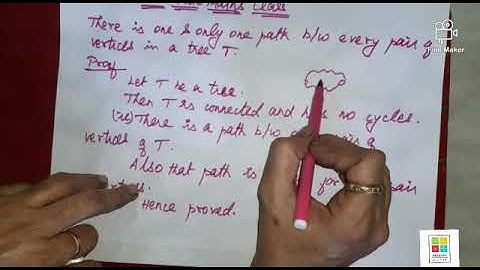 Class
There is one & only one path b/w every pair of
vertices in a tree T.
Proof
Let T be a tree.
Then T is connected and has no cycles.
(ie) There is a path b/w pair of
vertices of T.
Also that path is for pair
Hence proved.
Film Maker